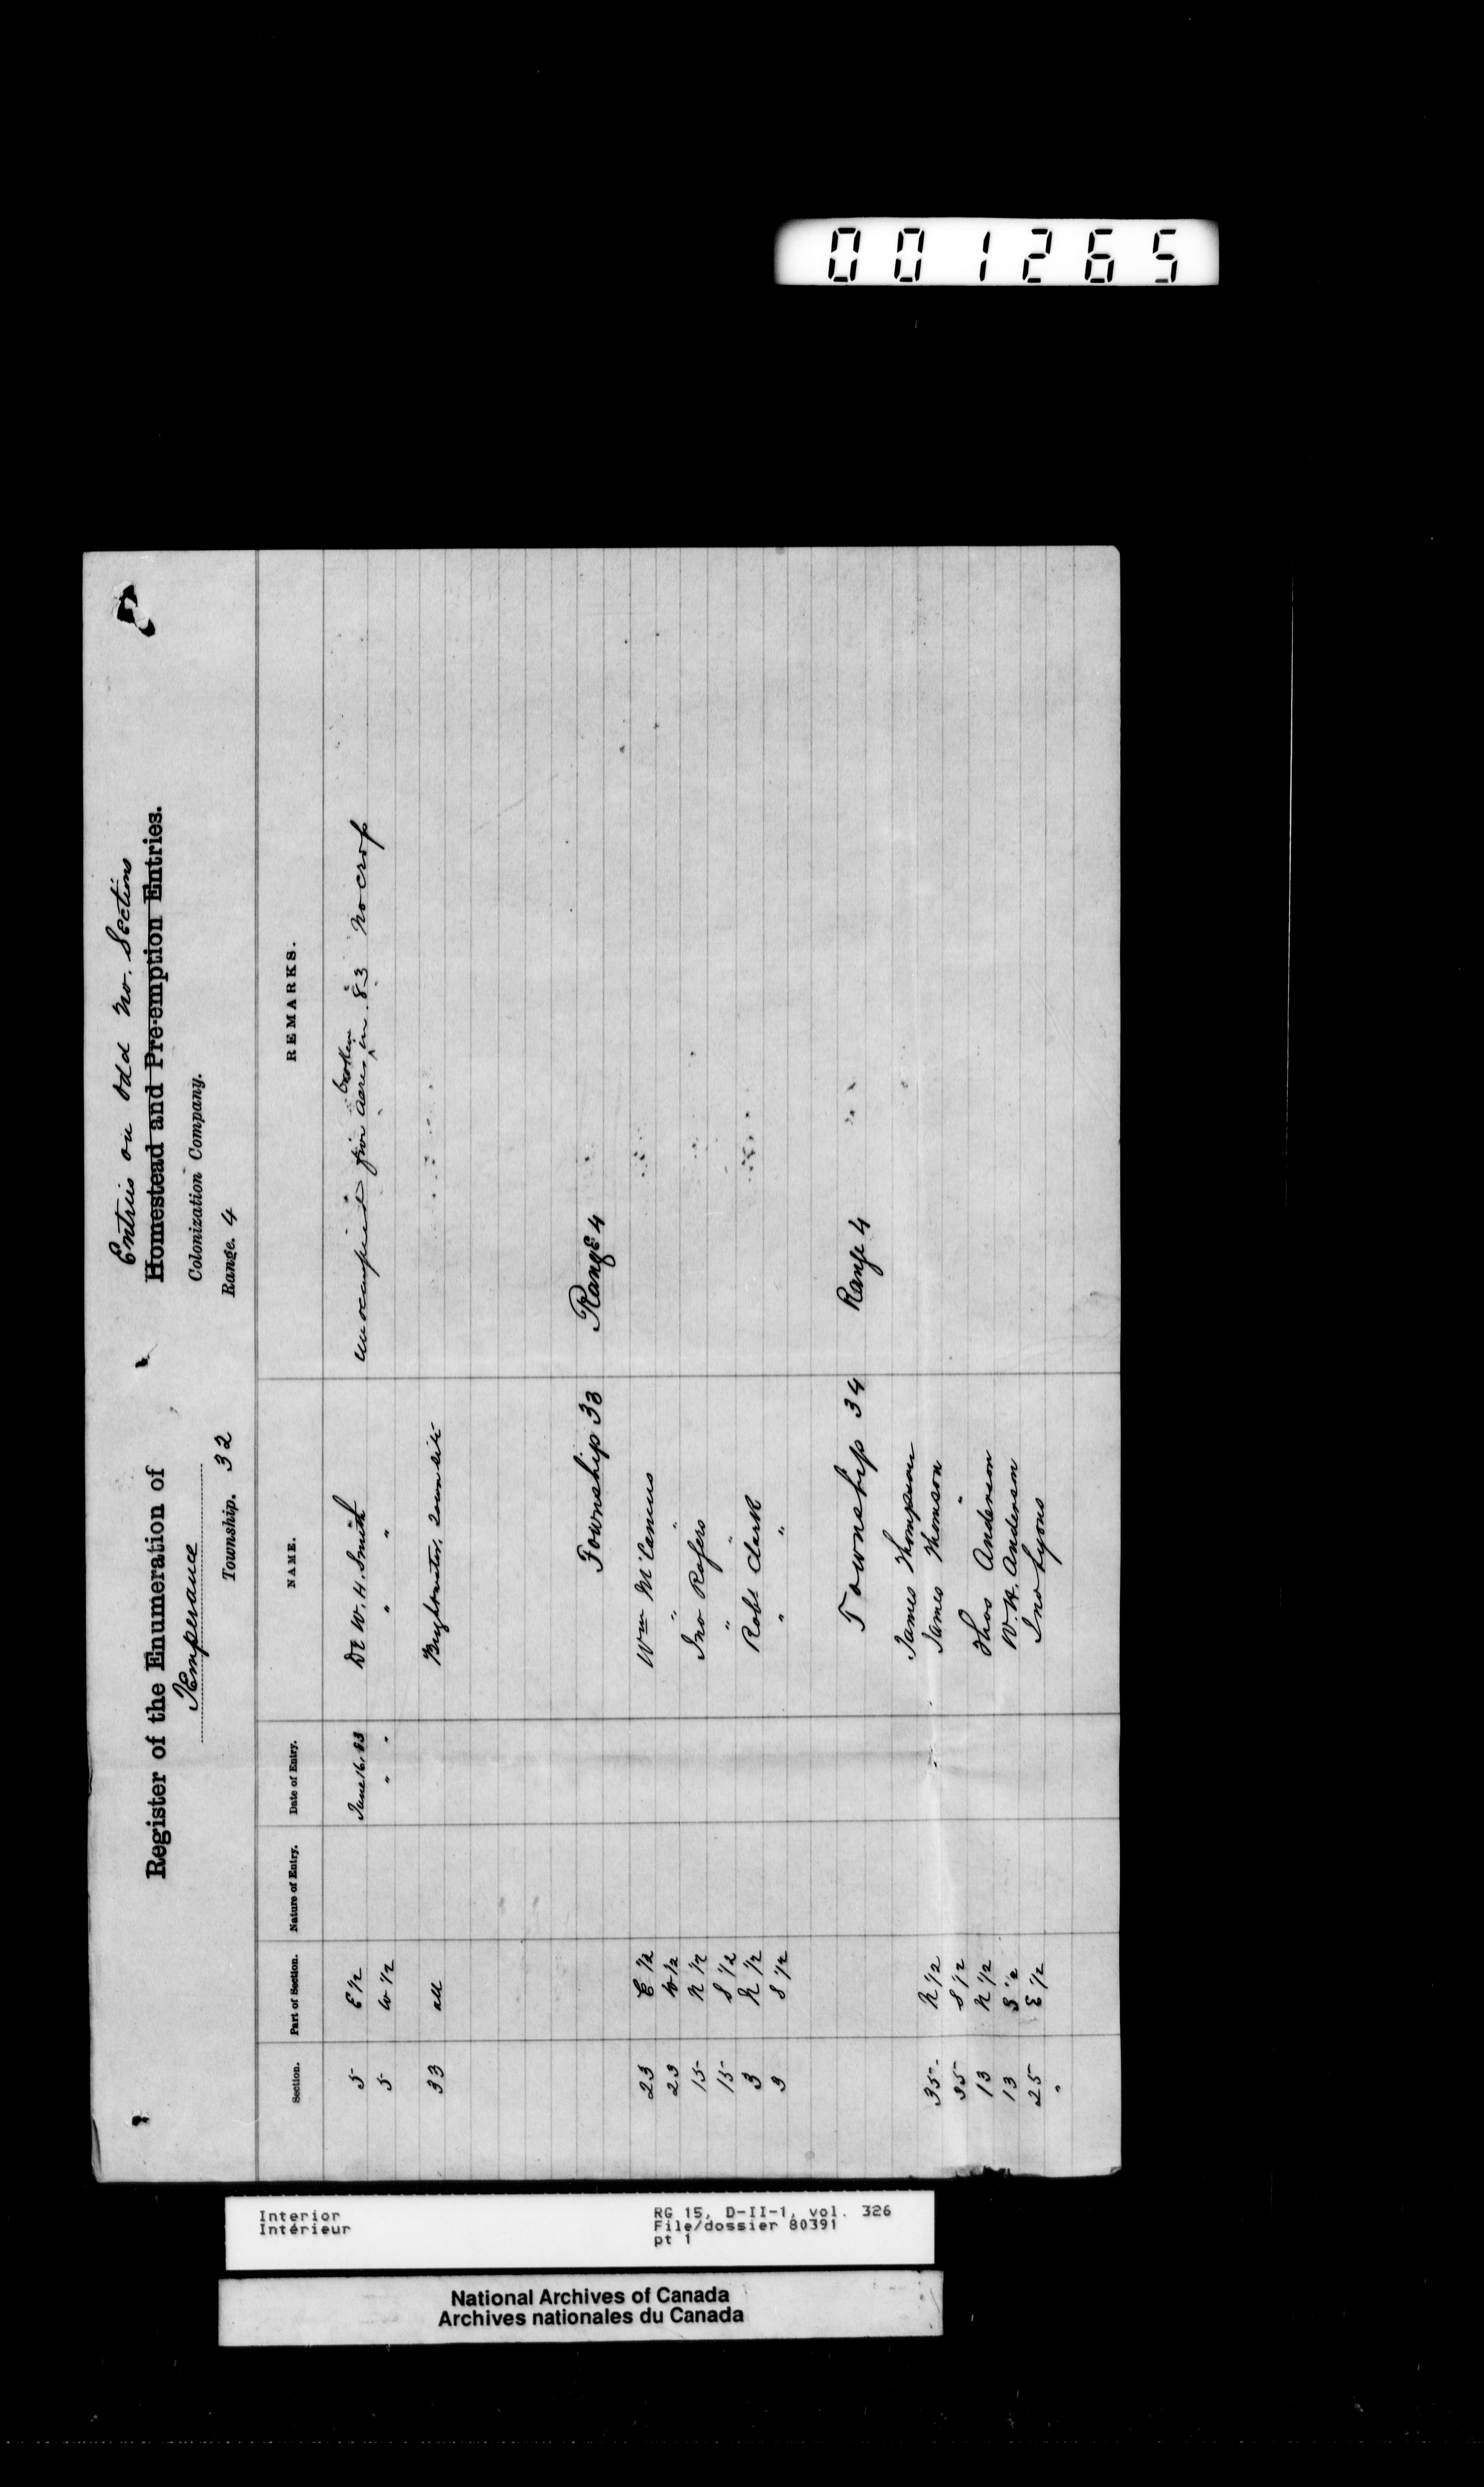 001265
Entries on odd No. Sections
Register of the Enumeration of Homestead and Pre-emption Entries.
Temperance Colonization Company.
Township. 32 Range. 4
Section. Part of Section. Nature of Entry. Date of Entry. NAME. REMARKS.
5 E 1/2 June 16, 83 Dr W. H. Smith unoccupied five acres broken in 83 no crop
5 W 1/2 " " " "
33 all Brightwater, Townsite
Township 33 Range 4
23 E 1/2 Wm McCamus
23 W 1/2 " "
15 N 1/2 Jno Rogers
15 S 1/2 " "
3 N 1/2 Robt Clark
3 S 1/2 " "
Township 34 Range 4
James Thompson
35 N 1/2 James Thomson
35 S 1/2 "
13 N 1/2 Thos Anderson
13 S 1/2 W. H. Anderson
25 E 1/2 Jno Lyons
"
Interior
Intérieur
RG 15, D-II-1, vol. 326
File/dossier 80391
pt 1
National Archives of Canada
Archives nationales du Canada